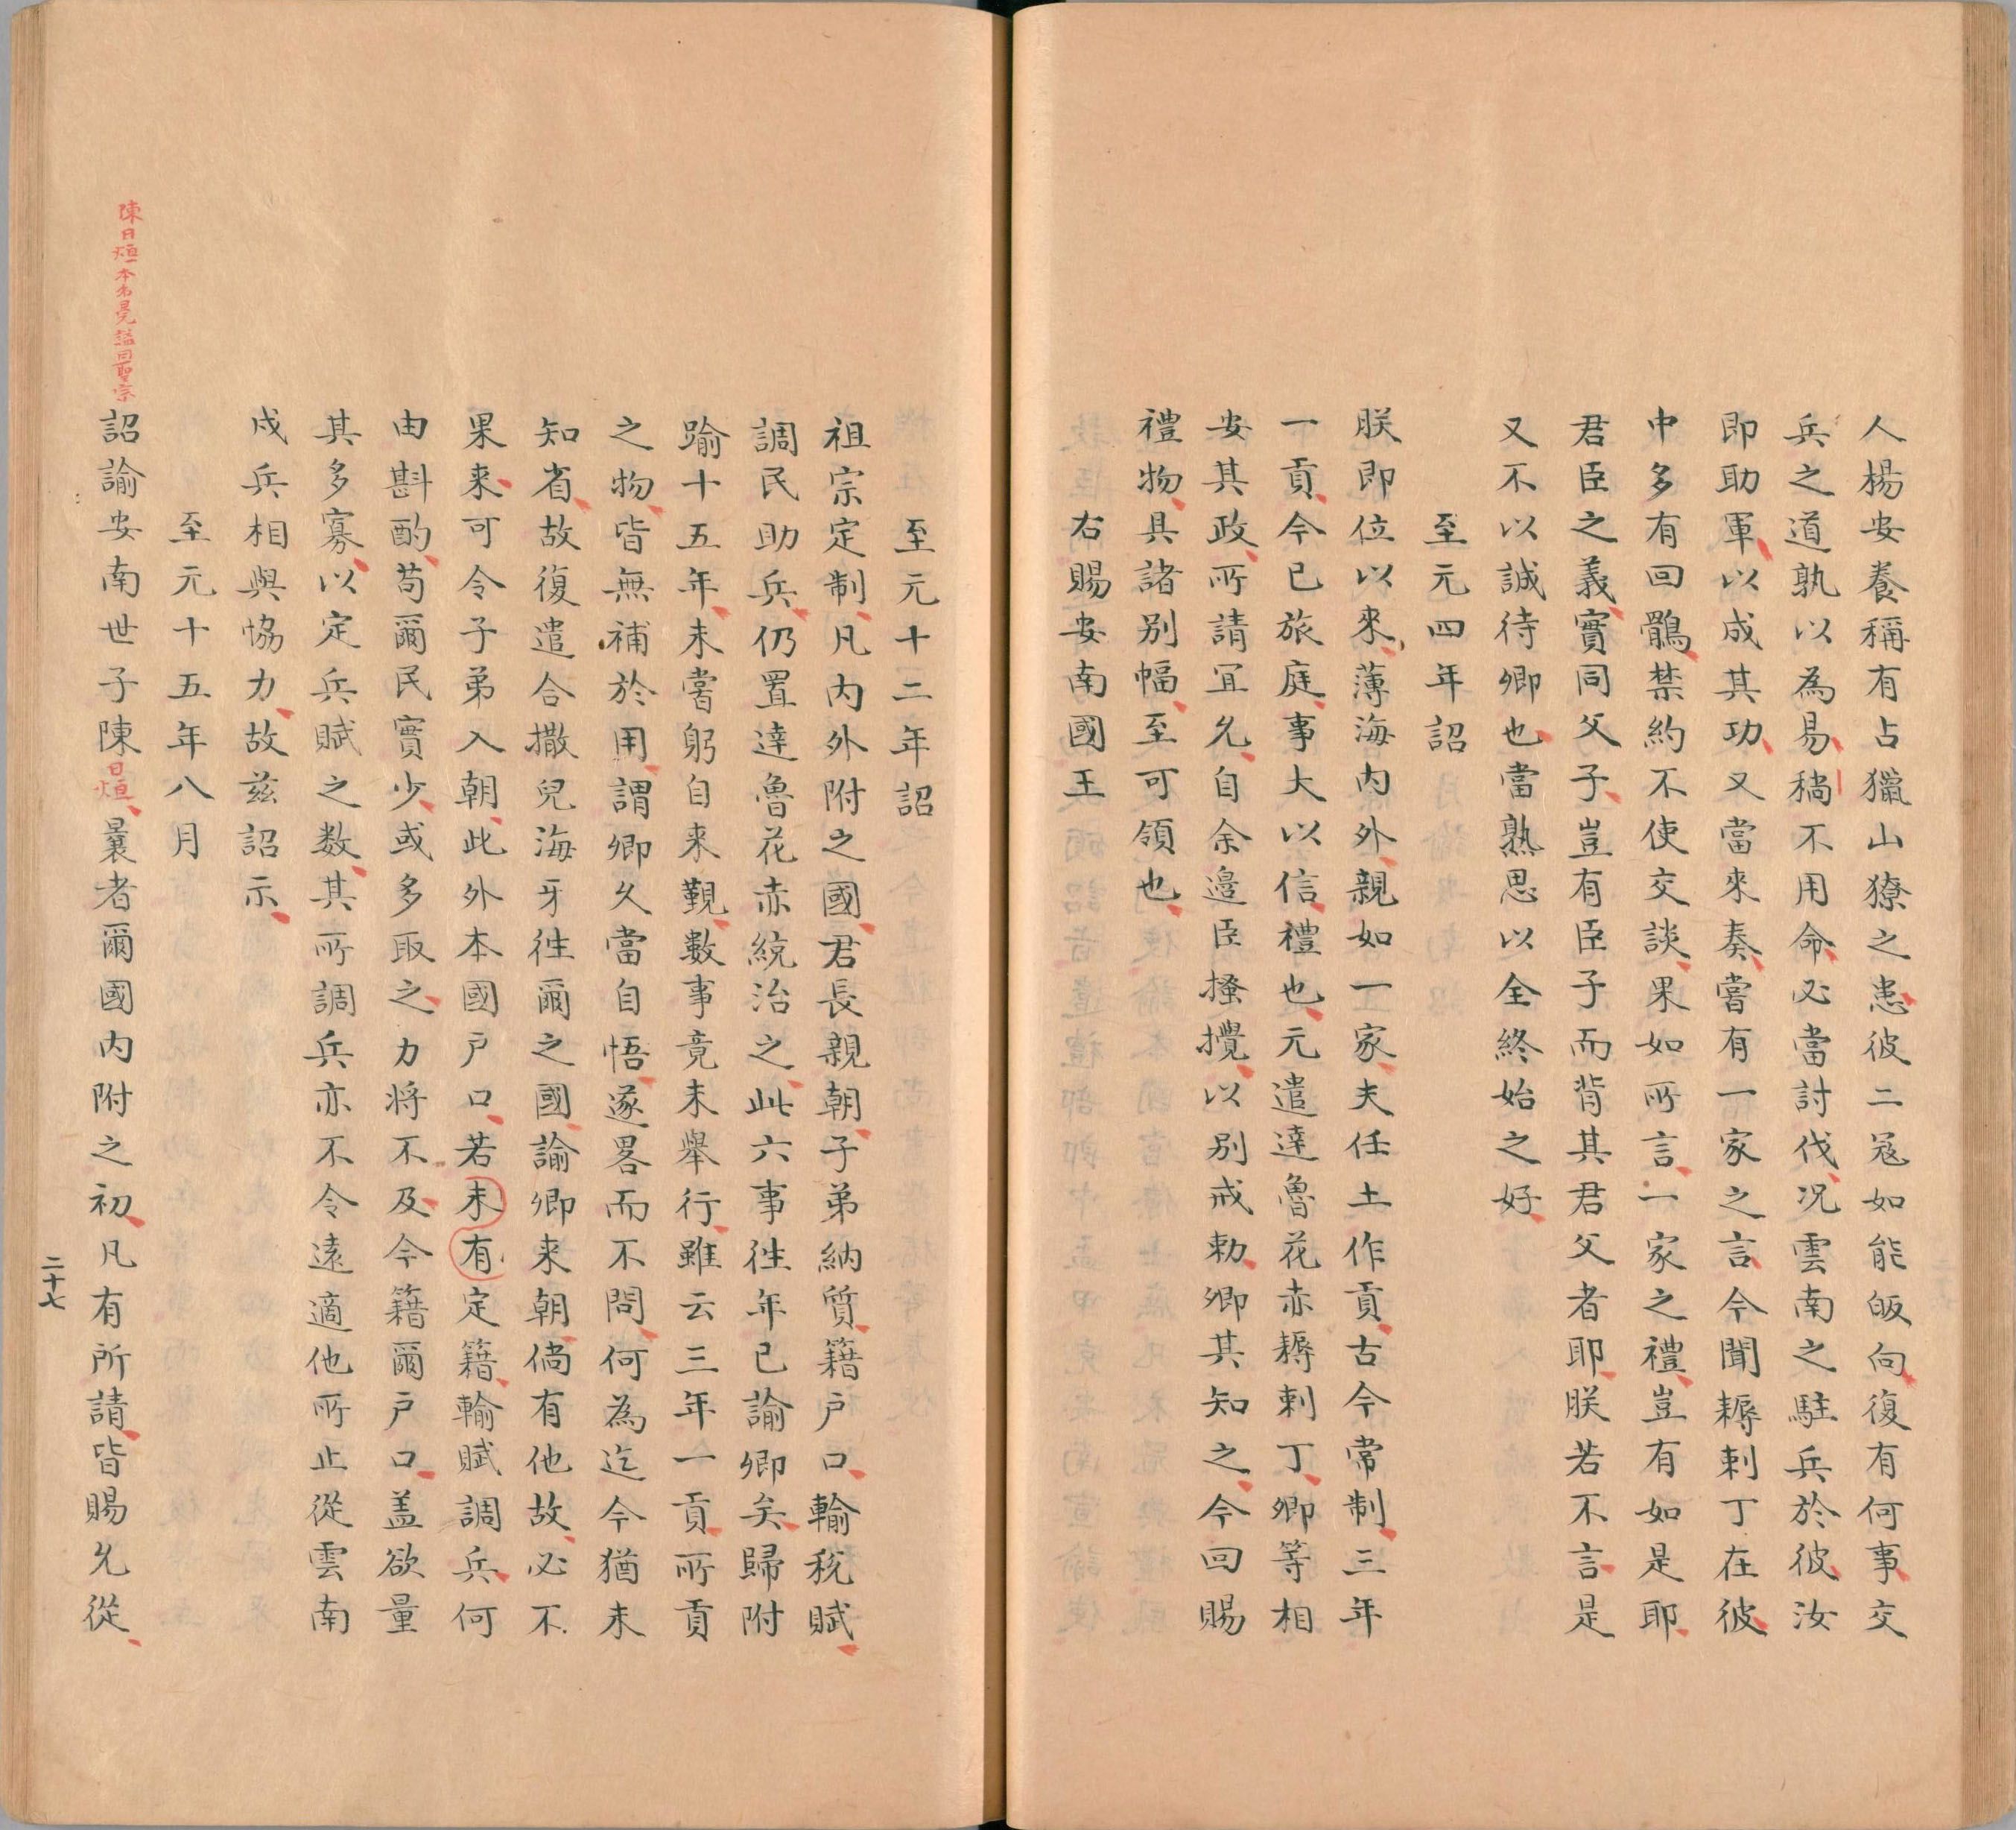 人楊安養稱有占獵山獠之患彼二冦如能皈向復有何事交
兵之道孰以為易稿不用命必當討伐况雲南之駐兵於彼汝
即助軍以成其功又當來奏嘗有一家之言今聞耨剌丁在彼
中多有回鶻禁約不使交談果如所言一家之禮豈有如是耶
君臣之義實同父子豈有臣子而背其君父者耶朕若不言是
又不以誠待卿也當熟思以全終始之好
至元四年詔
朕即位以來薄海內外親如一家夫任土作貢古今常制三年
一貢今已旅庭事大以信禮也元遣達魯花赤耨剌丁卿等相
安其政所請宜允自余邊臣搔擾以別戒勅卿其知之今回賜
禮物具諸别幅至可領也
右賜安南國王
至元十二年詔
祖宗定制凡內外附之國君長親朝子弟納質籍户口輸稅賦
調民助兵仍置達魯花赤統治之此六事徃年已諭卿矣歸附
踰十五年未嘗躬自来覲數事竟未舉行雖云三年一貢所貢
之物皆無補於用謂卿久當自悟遂畧而不問何為迄今猶未
知省故復遣合撒兒海牙徃爾之國諭卿来朝倘有他故必不
果来可令子弟入朝此外本國户口若未有定籍輸賦調兵何
由斟酌苟爾民實少或多取之力將不及今籍爾户口盖欲量
其多寡以定兵賦之数其所調兵亦不令遠適他所止從雲南
戍兵相與恊力故兹詔示
至元十五年八月
陳日烜本名晃諡曰聖宗
詔諭安南世子陳日烜曩者爾國內附之初凡有所請皆賜允從
二十七